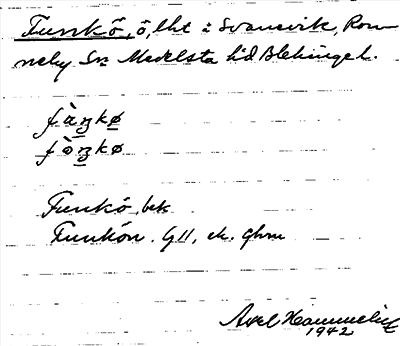 Funkö, ö, lht i Svanevik, Ron-
neby Sn Medelsta hd Blekinge l.
fàŋkø
fòŋkø
Funkö, bek
Funkön. GII, ek.
Axel Hammelin
1942